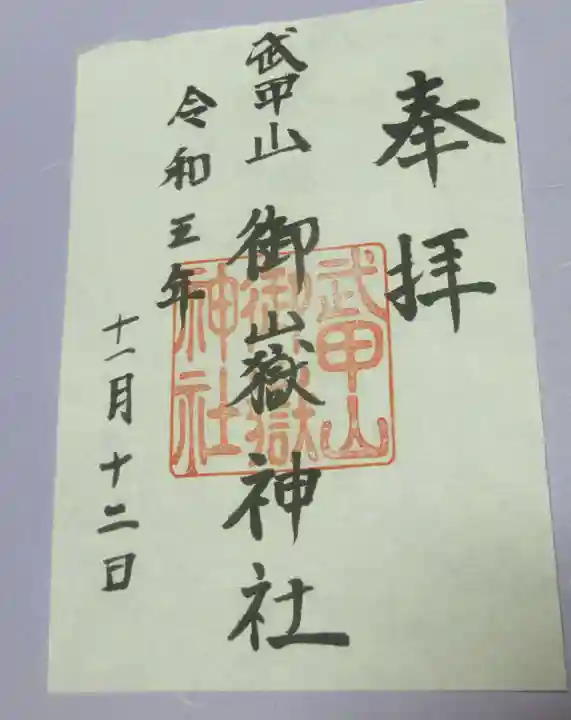 奉拝
武甲山 御山嶽神社
令和五年
十一月十二日
武甲山
御嶽
神社